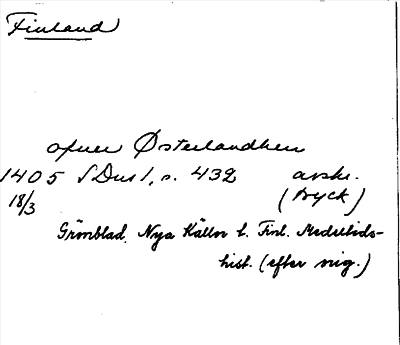 Finland
Østerlandhen
1405 SDns 1, s. 432 avskr.
18/3 (tryck)
Grönblad. Nya Källor t. Finl. Medeltids-
hist. (efter orig.)